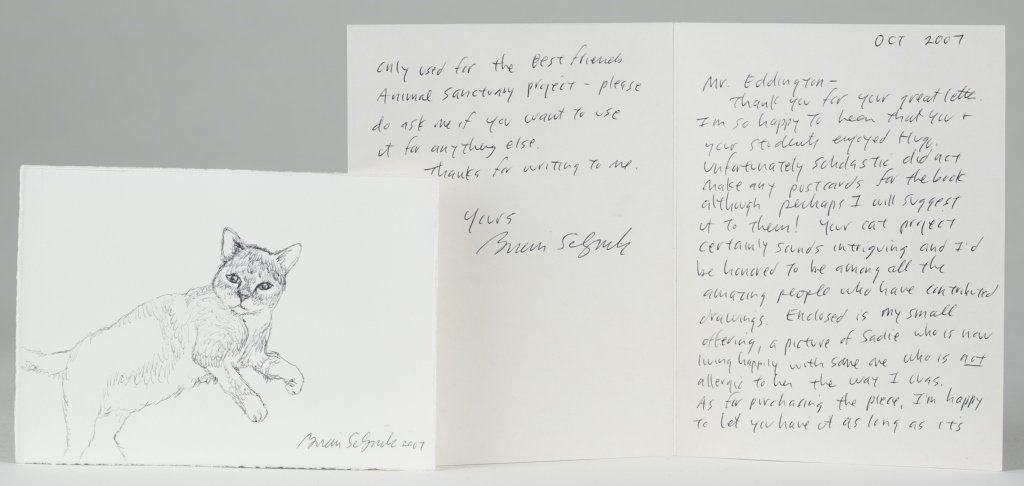 OCT 2007
Mr. Eddington-
Thank you for your great letter.
I'm so happy to hear that you +
your students enjoyed Hugo.
Unfortunately Scholastic did not
make any postcards for the book
although perhaps I will suggest
it to them! Your cat project
certainly sounds intriguing and I'd
be honored to be among all the
amazing people who have contributed
drawings. Enclosed is my small
offering, a picture of Sadie who is now
living happily with some one who is not
allergic to her the way I was.
As for purchasing the piece, I'm happy
to let you have it as long as it's
only used for the Best Friends
Animal Sanctuary project - please
do ask me if you want to use
it for anything else.
Thanks for writing to me.
Yours
Brian Selznick
Brian Selznick 2007